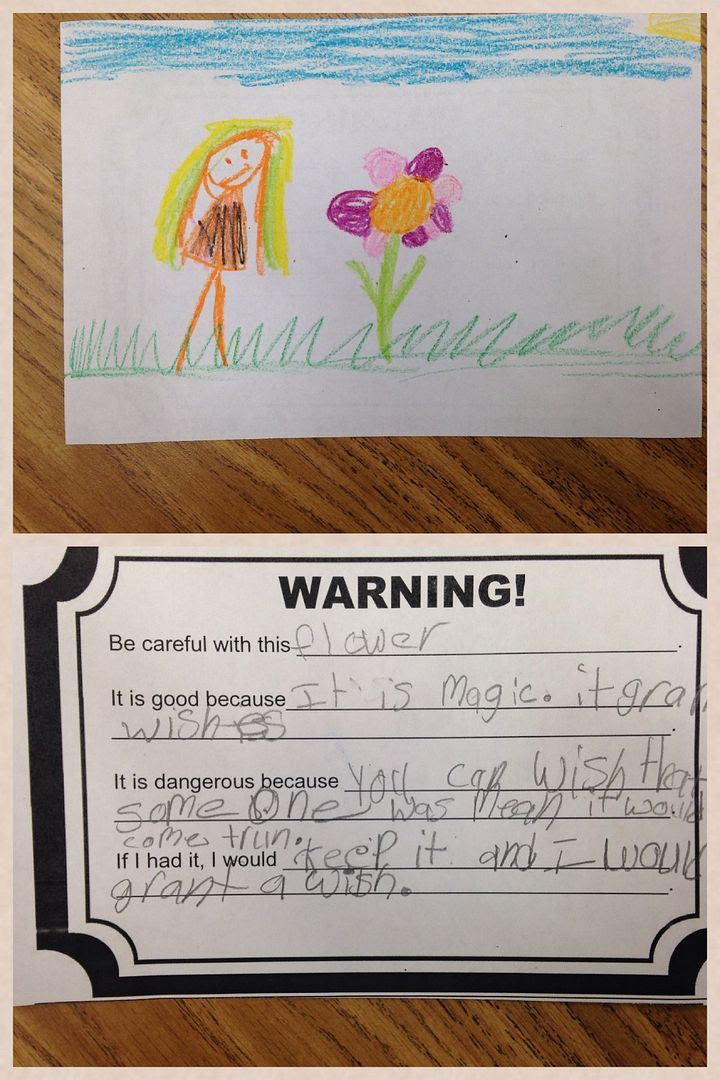 WARNING!
Be careful with this flower.
It is good because It is Magic. it gran
wishes.
It is dangerous because you can wish that
some One was mean it would
come trun.
If I had it, I would keep it and I would
grant a wish.